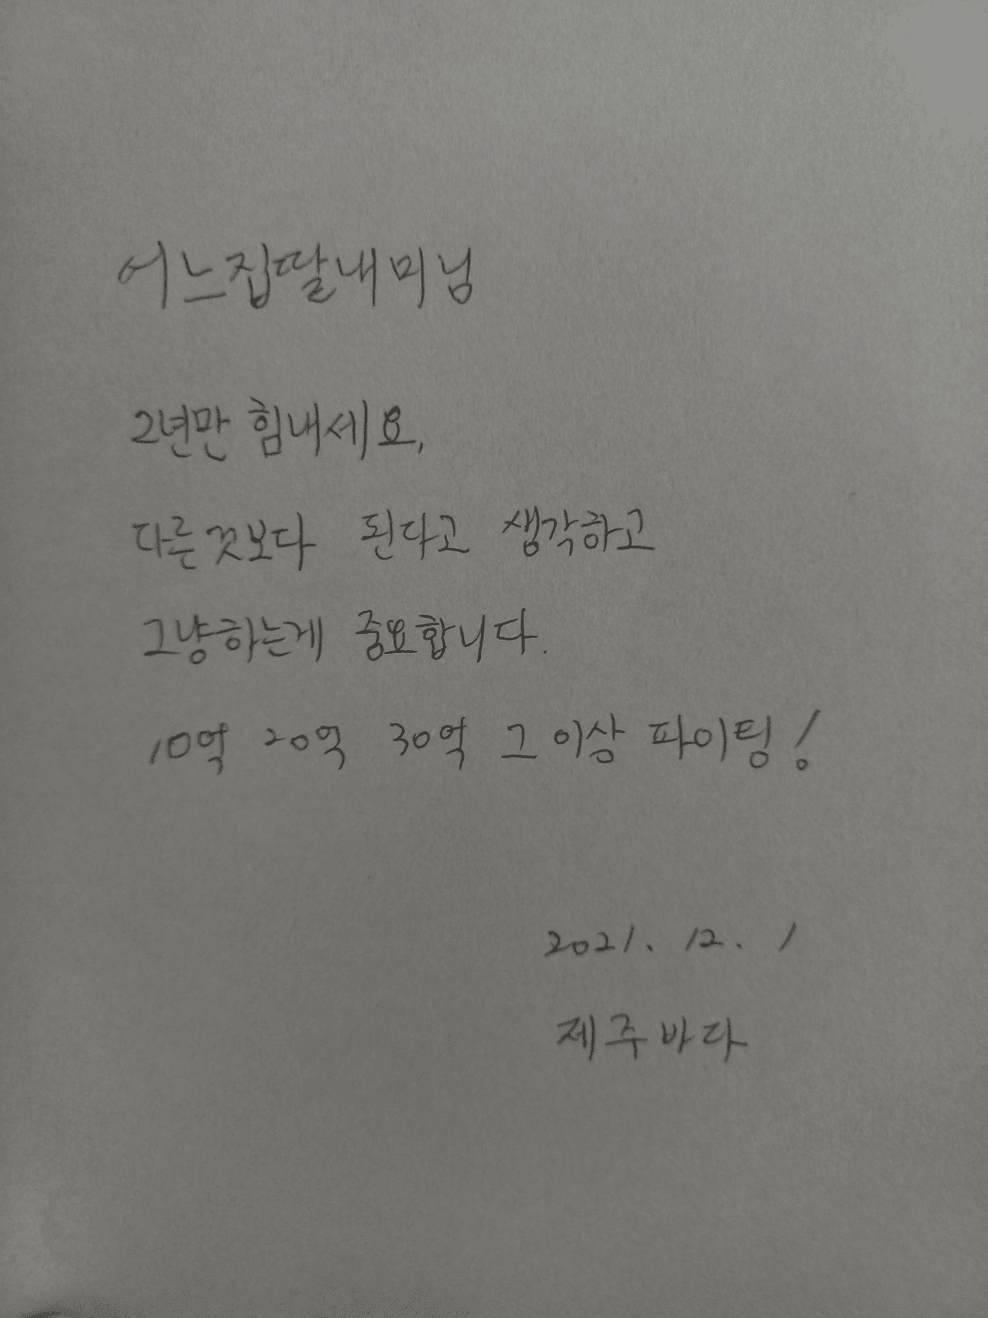 어느집딸내미님
2년만 힘내세요,
다른것보다 된다고 생각하고
그냥하는게 중요합니다.
10억 20억 30억 그 이상 파이팅!
2021. 12. 1
제주바다